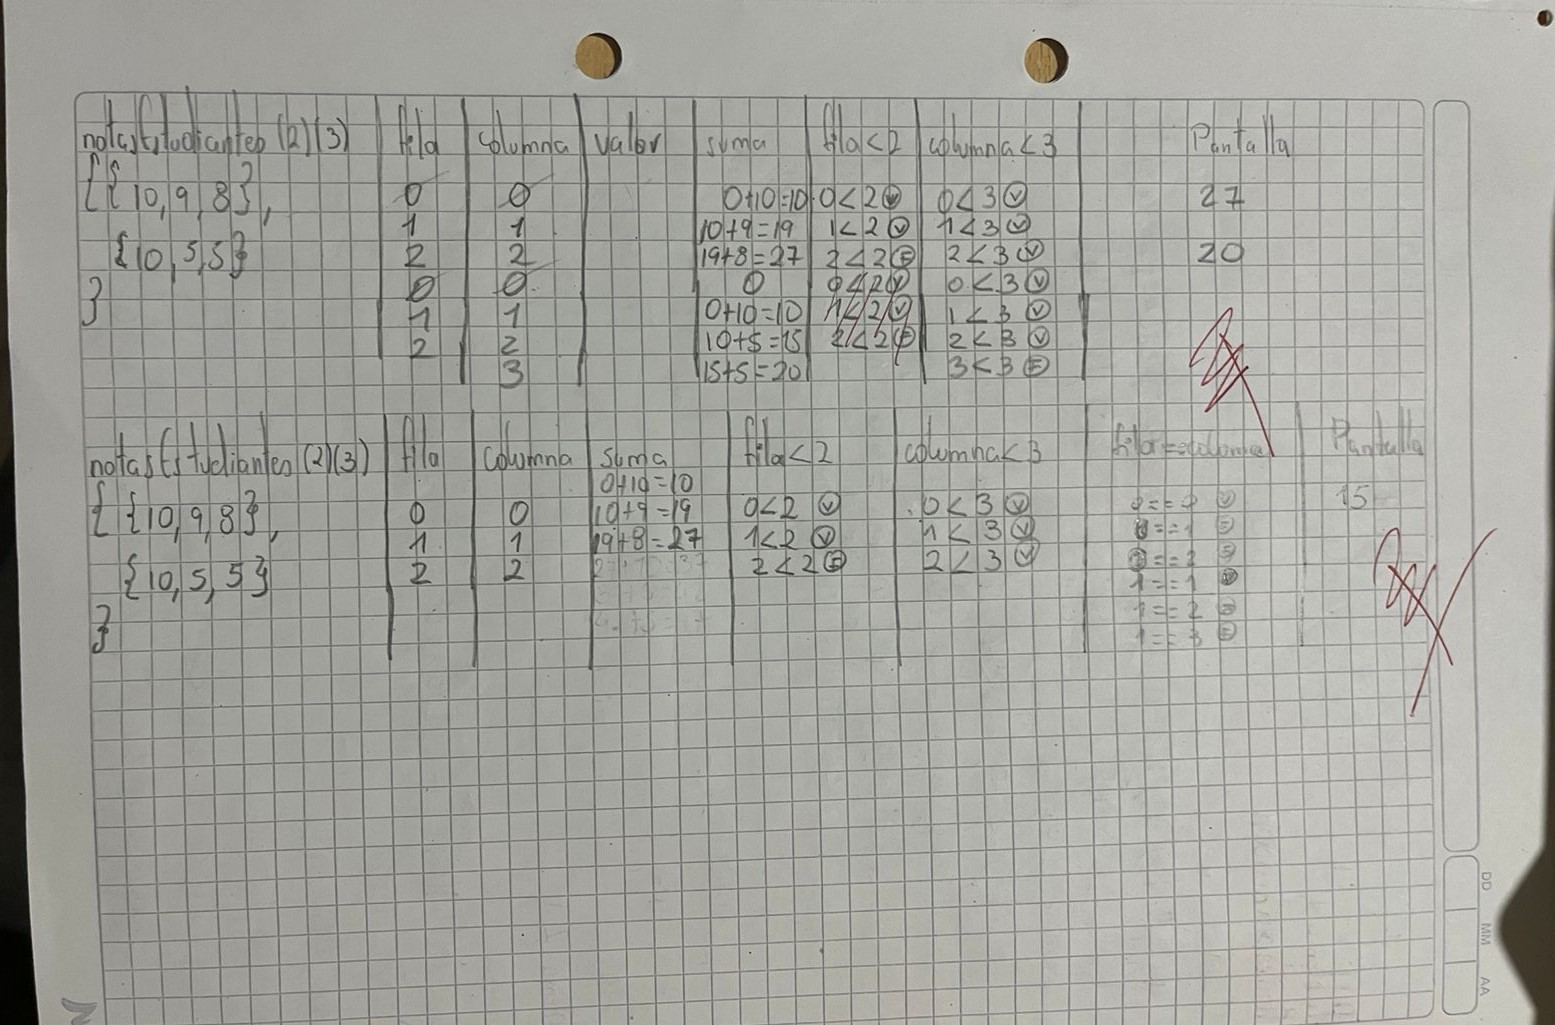 notasEstudiantes (2)(3) fila columna valor suma fila<2 columna<3 Pantalla
{{10,9,8}, 0 0 0+10=10 0<2 V 0<3 V 27
1 1 10+9=19 1<2 V 1<3 V
{10,5,5} 2 2 19+8=27 2<2 F 2<3 V 20
} 0 0 0 0<2 V 0<3 V
1 1 0+10=10 1<2 V 1<3 V
2 2 10+5=15 2<2 F 2<3 V
3 15+5=20 3<3 F
notasEstudiantes (2)(3) fila columna suma fila<2 columna<3 fila==columna Pantalla
0+10=10
{{10,9,8}, 0 0 10+9=19 0<2 V 0<3 V 0==0 V 15
1 1 19+8=27 1<2 V 1<3 V 0==1 F
{10,5,5} 2 2 2<2 F 2<3 V 0==2 F
1==1
} 1==2 F
1==3 F
DD MM AA